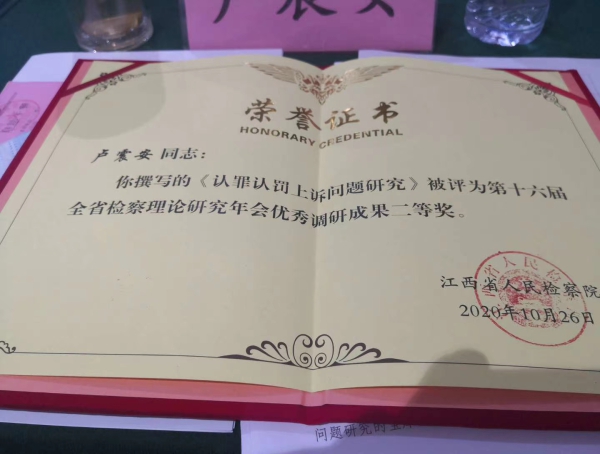 荣誉证书
HONORARY CREDENTIAL
卢震安 同志：
你撰写的《认罪认罚上诉问题研究》被评为第十六届
全省检察理论研究年会优秀调研成果二等奖。
江西省人民检察院
2020年10月26日
问题研究的